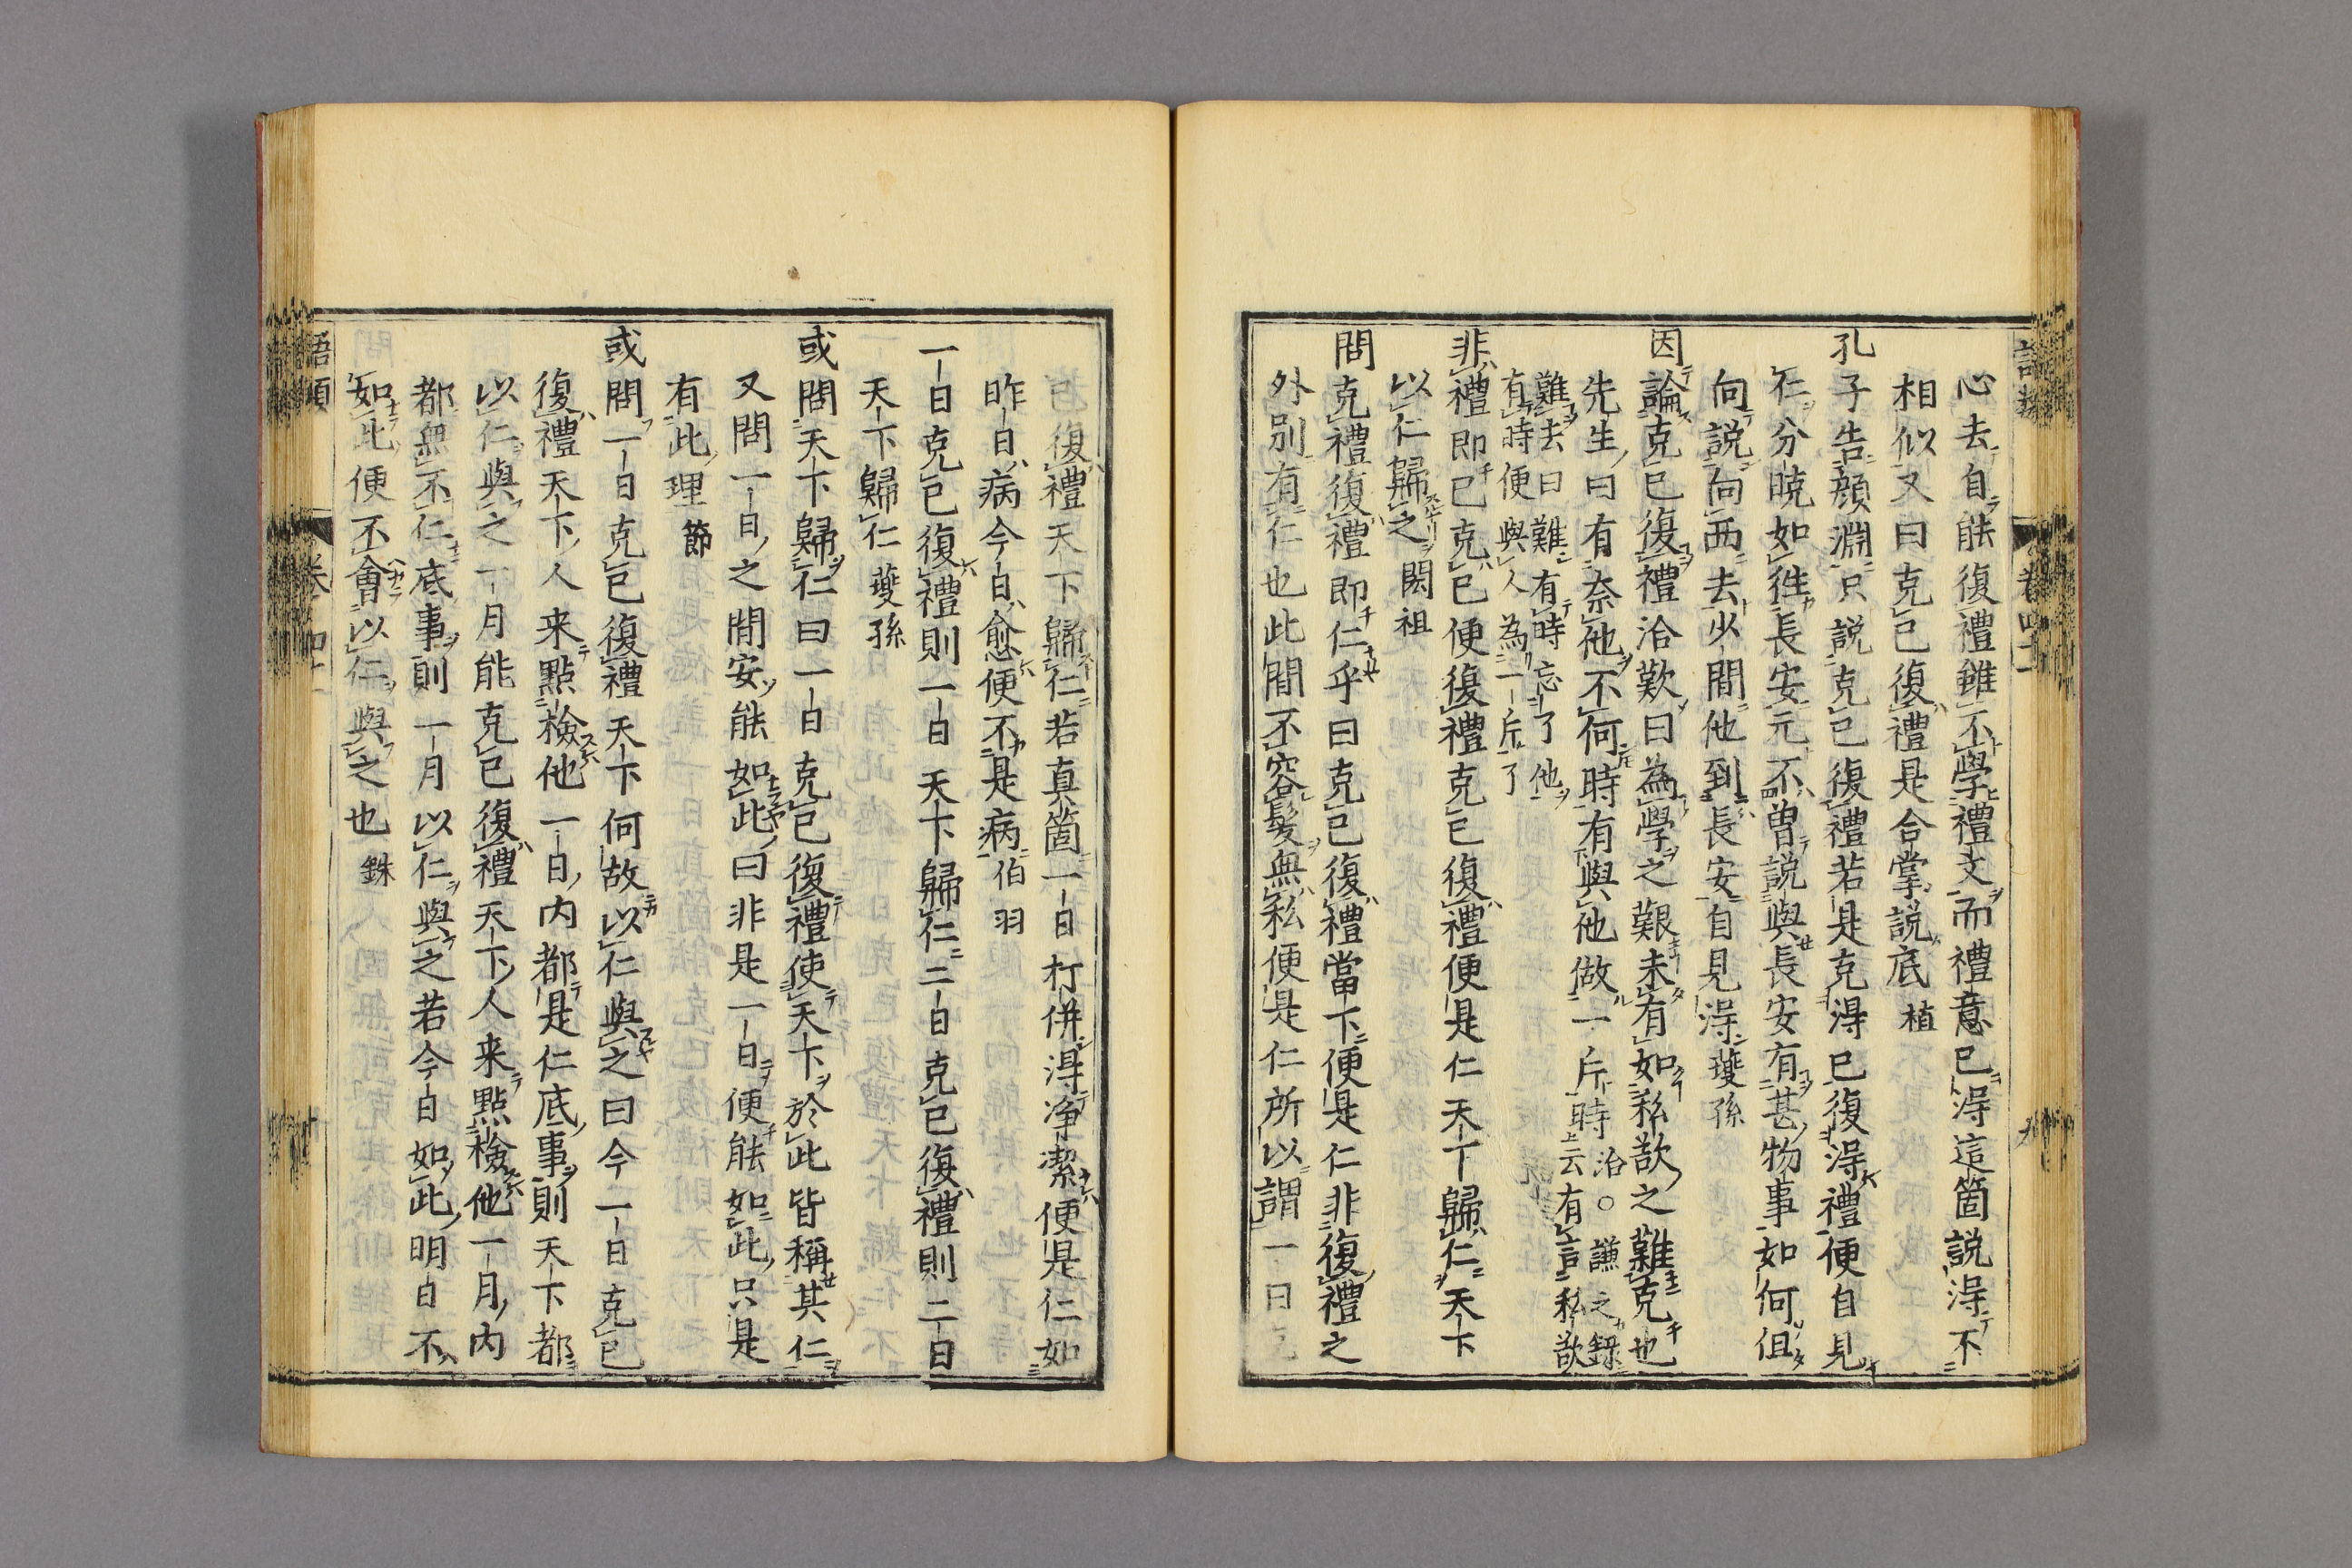 心去自能復禮雖不學禮文而禮意已得這箇說得不
相似又曰克己復禮是合掌說底 植
孔子告顏淵只說克己復禮若是克得己復得禮便自見
仁分曉如徃長安元不曾說與長安有甚物事如何但
向說向西去少間他到長安自見得 蘷孫
因論克己復禮洽歎曰為學之艱未有如私欲之難克也
先生曰有奈他不何時有與他做一片時 洽○謙之錄云有言私欲
難去曰難有時忘了他
有時便與人為一片了
非禮即己克己便復禮克己復禮便是仁天下歸仁天下
以仁歸之 閎祖
問克禮復禮即仁乎曰克己復禮當下便是仁非復禮之
外別有仁也此間不容髮無私便是仁所以謂一日克
己復禮天下歸仁若真箇一日打併得淨潔便是仁如
昨日病今日愈便不是病 伯羽
一日克己復禮則一日天下歸仁二日克己復禮則二日
天下歸仁 蘷孫
或問天下歸仁曰一日克己復禮使天下於此皆稱其仁
又問一日之間安能如此曰非是一日便能如此只是
有此理 節
或問一日克己復禮天下何故以仁與之曰今一日克己
復禮天下人来點檢他一日内都是仁底事則天下都
以仁與之一月能克己復禮天下人来點檢他一月内
都無不仁底事則一月以仁與之若今日如此明日不
如此便不會以仁與之也 銖
語類 卷四十一